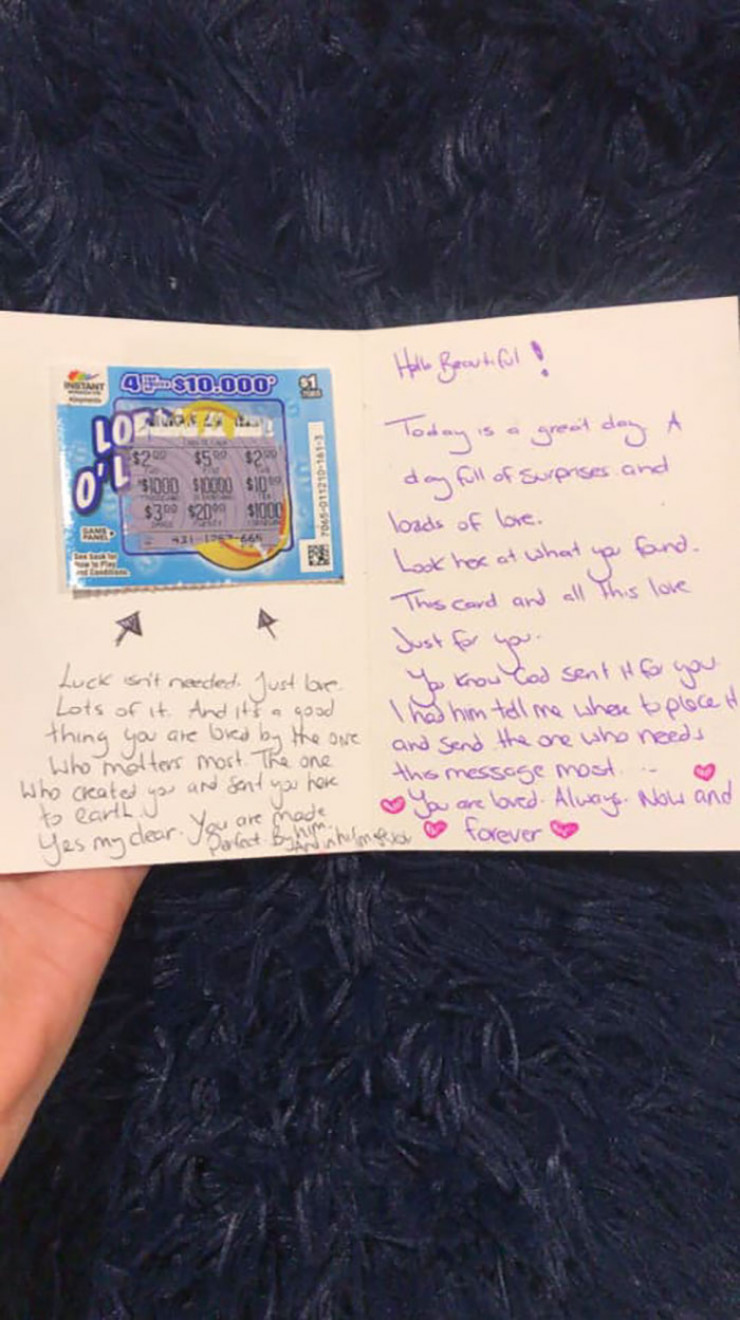 INSTANT
4 $10.000
$1
LO
O'L
$2.00 $5.00 $2.00
$1000 $10000 $10.00
$3.00 $20.00 $1000
GAME
PANEL
See back for
How to Play
and Conditions
7065-011210-161-3
Luck isn't needed. Just love.
Lots of it. And it's a good
thing you are loved by the one
who matters most. The one
who created you and sent you here
to earth.
Yes my dear. You are made
Perfect By him.
Hello Beautiful!
Today is a great day. A
day full of surprises and
loads of love.
Look here at what you found.
This card and all this love
Just for you.
You know God sent it for you
I had him tell me where to place it
and send the one who needs
this message most...
You are loved. Always. Now and
forever